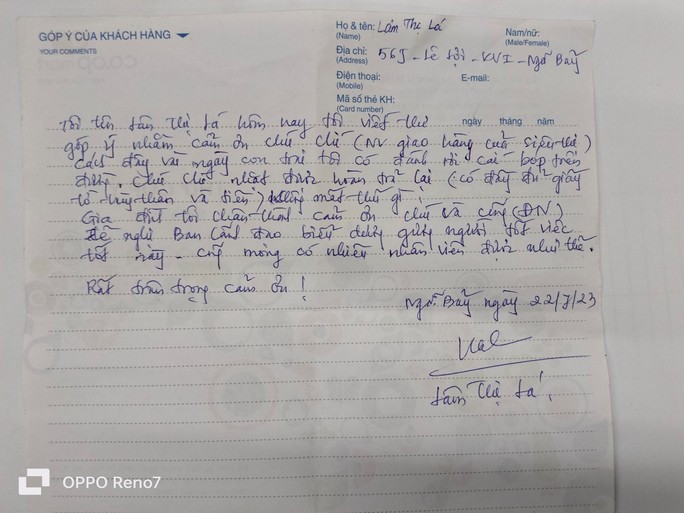 GÓP Ý CỦA KHÁCH HÀNG
YOUR COMMENTS
Họ & tên: Lâm Thị Lá
(Name)
Nam/nữ:
(Male/Female)
Địa chỉ: 565 - Lê Lợi - KVI - Ngã Bảy
(Address)
Điện thoại:
(Mobile)
E-mail:
Mã số thẻ KH:
(Card number)
ngày tháng năm
Tôi tên Lâm Thị Lá hôm nay tôi viết thư
góp ý nhằm cảm ơn chú (NV giao hàng của siêu thị)
Cách đây vài ngày con tôi có đánh rơi cái bóp trên
đường. Chú nhặt được hoàn trả lại (có đầy đủ giấy
tờ tùy thân và tiền) không mất thứ gì!
Gia đình tôi chân thành cảm ơn chú và công (ĐN).
Đề nghị Ban Lãnh đạo biểu dương người tốt việc
tốt này - mong có nhiều nhân viên được như thế.
Rất trân trọng cảm ơn!
Ngã Bảy ngày 22/7/23
Lâm Thị Lá
OPPO Reno7